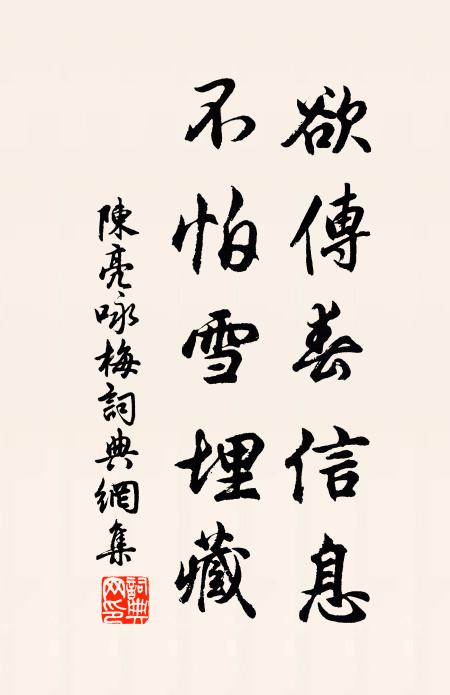 欲傳春信息
不怕雪埋藏
陳亮咏梅詞典網集
詞典網印